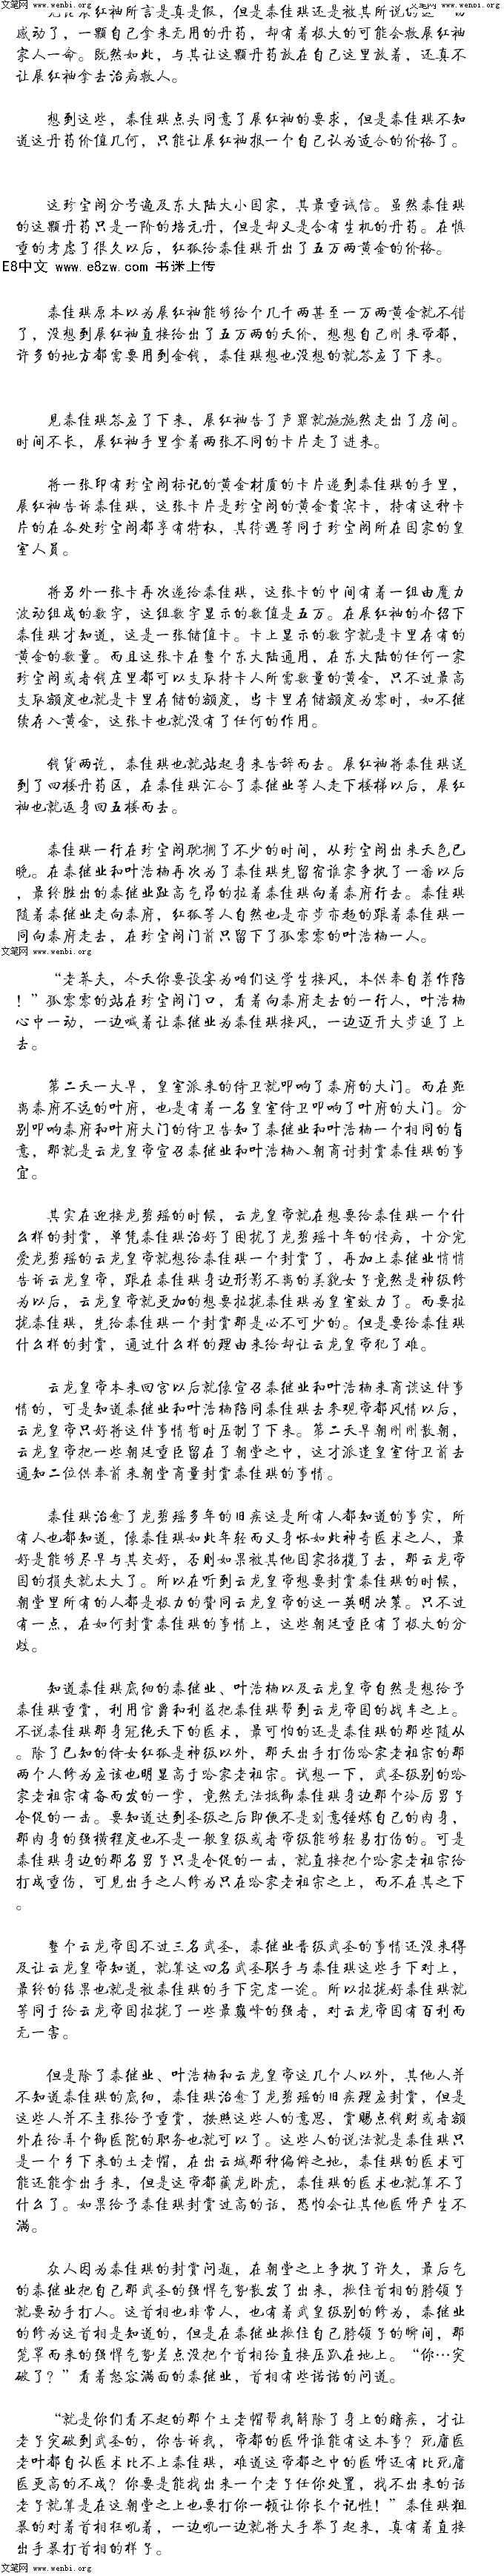 文笔网 www.wenbi.org
文笔网 www.wenbi.org
感动了，一颗自己拿来无用的丹药，却有着极大的可能会救展红袖
家人一命。既然如此，与其让这一颗丹药放在自己这里放着，还真不
让展红袖拿去治病救人。
想到这些，秦佳琪点头同意了展红袖的要求，但是秦佳琪不知
道这丹药价值几何，只能让展红袖报一个自己认为适合的价格了。
这珍宝阁分号遍及东大陆大小国家，其最重诚信。虽然秦佳琪
的这颗丹药只是一阶的培元丹，但是却又是含有生机的丹药。在慎
重的考虑了很久以后，红狐给秦佳琪开出了五万两黄金的价格。
E8中文 www.e8zw.com 书迷上传
秦佳琪原本以为展红袖能够给个几千两甚至一万两黄金就不错
了，没想到展红袖直接给出了五万两的天价，想想自己刚来帝都，
许多的地方都需要用到金钱，秦佳琪想也没想的就答应了下来。
见秦佳琪答应了下来，展红袖告了声罪就施施然走出了房间。
时间不长，展红袖手里拿着两张不同的卡片走了进来。
将一张印有珍宝阁标记的黄金材质的卡片递到秦佳琪的手里，
展红袖告诉秦佳琪，这张卡片是珍宝阁的黄金贵宾卡，持有这种卡
片的在各处珍宝阁都享有特权，其待遇等同于珍宝阁所在国家的皇
室人员。
将另外一张卡再次递给秦佳琪，这张卡的中间有着一组由魔力
波动组成的数字，这组数字显示的数值是五万。在展红袖的介绍下
秦佳琪才知道，这是一张储值卡。卡上显示的数字就是卡里存有的
黄金的数量。而且这张卡在整个东大陆通用，在东大陆的任何一家
珍宝阁或者钱庄里都可以支取持卡人所需数量的黄金，只不过最高
支取额度也就是卡里存储的额度，当卡里存储额度为零时，如不继
续存入黄金，这张卡也就没有了任何的作用。
钱货两讫，秦佳琪也就站起身来告辞而去。展红袖将秦佳琪送
到了四楼丹药区，在秦佳琪汇合了秦继业等人走下楼梯以后，展红
袖也就返身回五楼而去。
秦佳琪一行在珍宝阁耽搁了不少的时间，从珍宝阁出来天色已
晚。在秦继业和叶浩楠再次为了秦佳琪先留宿谁家争执了一番以后
，最终胜出的秦继业趾高气昂的拉着秦佳琪向着秦府行去。秦佳琪
随着秦继业走向秦府，红狐等人自然也是亦步亦趋的跟着秦佳琪一
同向秦府走去，在珍宝阁门前只留下了孤零零的叶浩楠一人。
文笔网 www.wenbi.org
“老莽夫，今天你要设宴为咱们这学生接风，本供奉自荐作陪
！”孤零零的站在珍宝阁门口，看着向秦府走去的一行人，叶浩楠
心中一动，一边喊着让秦继业为秦佳琪接风，一边迈开大步追了上
去。
第二天一大早，皇室派来的侍卫就叩响了秦府的大门。而在距
离秦府不远的叶府，也是有着一名皇室侍卫叩响了叶府的大门。分
别叩响秦府和叶府大门的侍卫告知了秦继业和叶浩楠一个相同的旨
意，那就是云龙皇帝宣召秦继业和叶浩楠入朝商讨封赏秦佳琪的事
宜。
其实在迎接龙碧瑶的时候，云龙皇帝就在想要给秦佳琪一个什
么样的封赏，单凭秦佳琪治好了困扰了龙碧瑶十年的怪病，十分宠
爱龙碧瑶的云龙皇帝就想给秦佳琪一个封赏了，再加上秦继业悄悄
告诉云龙皇帝，跟在秦佳琪身边形影不离的美貌女子竟然是神级修
为以后，云龙皇帝就更加的想要拉拢秦佳琪为皇室效力了。而要拉
拢秦佳琪，先给秦佳琪一个封赏那是必不可少的。但是要给秦佳琪
什么样的封赏，通过什么样的理由来给却让云龙皇帝犯了难。
云龙皇帝本来回宫以后就像宣召秦继业和叶浩楠来商谈这件事
情的，可是知道秦继业和叶浩楠陪同秦佳琪去参观帝都风情以后，
云龙皇帝只好将这件事情暂时压制了下来。第二天早朝刚刚散朝，
云龙皇帝把一些朝廷重臣留在了朝堂之中，这才派遣皇室侍卫前去
通知二位供奉前来朝堂商量封赏秦佳琪的事情。
秦佳琪治愈了龙碧瑶多年的旧疾这是所有人都知道的事实，所
有人也都知道，像秦佳琪如此年轻而又身怀如此神奇医术之人，最
好是能够尽早与其交好，否则如果被其他国家招揽了去，那云龙帝
国的损失就太大了。所以在听到云龙皇帝想要封赏秦佳琪的时候，
朝堂里所有的人都是极力的赞同云龙皇帝的这一英明决策。只不过
有一点，在如何封赏秦佳琪的事情上，这些朝廷重臣有了极大的分
歧。
知道秦佳琪底细的秦继业、叶浩楠以及云龙皇帝自然是想给予
秦佳琪重赏，利用官爵和利益把秦佳琪帮到云龙帝国的战车之上。
不说秦佳琪那身冠绝天下的医术，最可怕的还是秦佳琪的那些随从
。除了已知的侍女红狐是神级以外，那天出手打伤哈家老祖宗的那
两个人修为应该也明显高于哈家老祖宗。试想一下，武圣级别的哈
家老祖宗有备而发的一掌，竟然无法抵御秦佳琪身边那个冷厉男子
仓促的一击。要知道达到圣级之后即便不是刻意锤炼自己的肉身，
那肉身的强横程度也不是一般皇级或者帝级能够轻易打伤的。可是
秦佳琪身边的那名男子只是仓促的一击，就直接把个哈家老祖宗给
打成重伤，可见出手之人修为只在哈家老祖宗之上，而不在其之下
。
整个云龙帝国不过三名武圣，秦继业晋级武圣的事情还没来得
及让云龙皇帝知道，就算这四名武圣联手与秦佳琪这些手下对上，
最终的结果也就是被秦佳琪的手下完虐一途。所以拉拢好秦佳琪就
等同于给云龙帝国拉拢了一些最巅峰的强者，对云龙帝国有百利而
无一害。
但是除了秦继业、叶浩楠和云龙皇帝这几个人以外，其他人并
不知道秦佳琪的底细，秦佳琪治愈了龙碧瑶的旧疾理应封赏，但是
这些人并不主张给予重赏，按照这些人的意思，赏赐点钱财或者额
外在给弄个御医院的职务也就可以了。这些人的说法就是秦佳琪只
是一个乡下来的土老帽，在出云城那种偏僻之地，秦佳琪的医术可
能还能拿出手来，但是这帝都藏龙卧虎，秦佳琪的医术也就算不了
什么了。如果给予秦佳琪封赏过高的话，恐怕会让其他医师产生不
满。
众人因为秦佳琪的封赏问题，在朝堂之上争执了许久，最后气
的秦继业把自己那武圣的强悍气势散发了出来，揪住首相的脖领子
就要动手打人。这首相也非常人，也有着武皇级别的修为，秦继业
的修为这首相是知道的，但是在秦继业揪住自己脖领子的瞬间，那
笼罩而来的强悍气势差点没把个首相给直接压趴在地上。“你…突
破了？”看着怒容满面的秦继业，首相有些诺诺的问道。
“就是你们看不起的那个土老帽帮我解除了身上的暗疾，才让
老子突破到武圣的，你告诉我，帝都的医师谁能有这本事？死庸医
老叶都自认医术比不上秦佳琪，难道这帝都之中的医师还有比死庸
医更高的不成？你要是能找出来一个老子任你处置，找不出来的话
老子就算是在这朝堂之上也要打你一顿让你长个记性！”秦佳琪粗
暴的对着首相狂吼着，一边吼一边就将大手举了起来，真有着直接
出手暴打首相的样子。
文笔网 www.wenbi.org